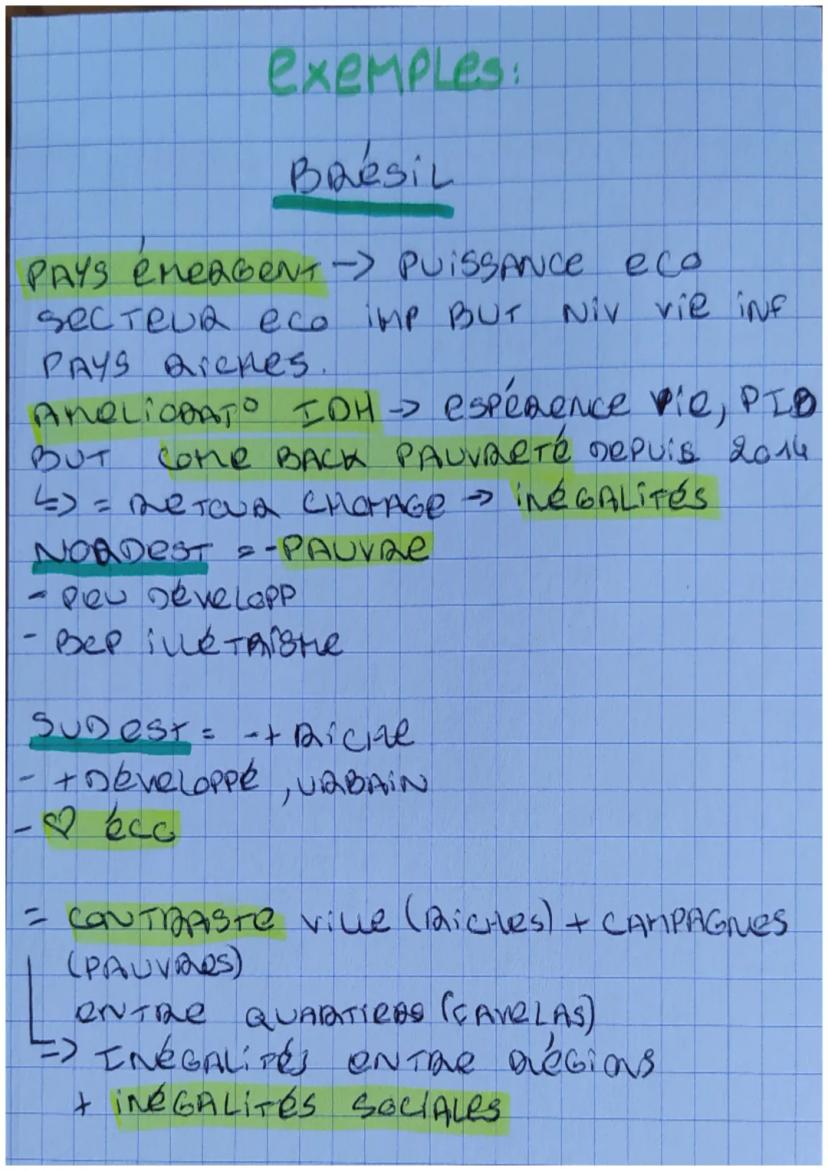 EXEMPLES:
BRÉSIL
PAYS ÉMERGENT -> PUISSANCE ECO
SECTEUR ECO IMP BUT NIV VIE INF
PAYS RICHES.
AMELIORAT° IDH -> ESPÉRENCE VIE, PIB
BUT COME BACK PAUVRETÉ DEPUIS 2014
↳> = RETOUR CHOMAGE -> INÉGALITÉS
NORDEST = - PAUVRE
- PEU DÉVELOPP
- BCP ILLÉTRISME
SUDEST = - + RICHE
- + DÉVELOPPÉ, URBAIN
- ♡ ÉCO
= CONTRASTE VILLE (RICHES) + CAMPAGNES
(PAUVRES)
ENTRE QUARTIERS (FAVELAS)
=> INÉGALITÉS ENTRE RÉGIONS
+ INÉGALITÉS SOCIALES